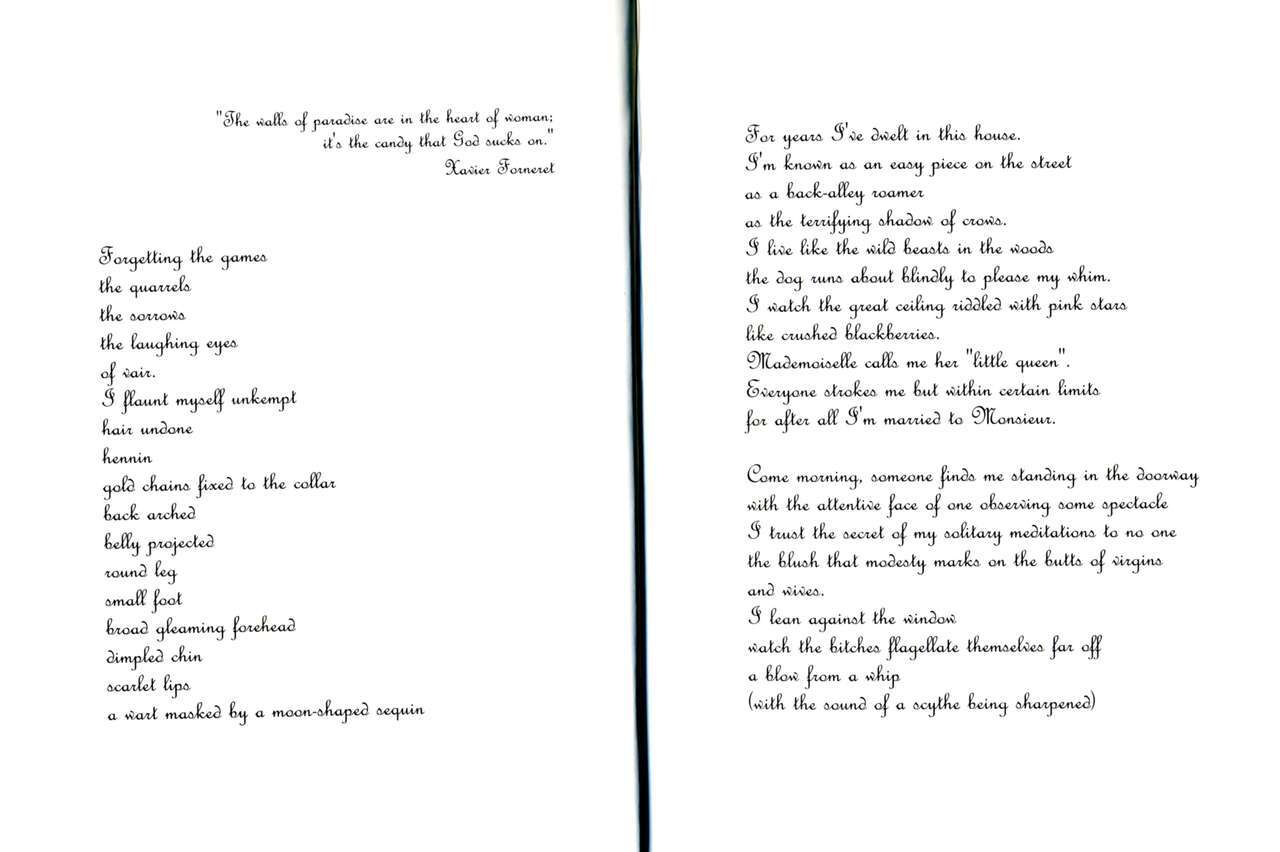 "The walls of paradise are in the heart of woman;
it's the candy that God sucks on."
Xavier Forneret
Forgetting the games
the quarrels
the sorrows
the laughing eyes
of vair.
I flaunt myself unkempt
hair undone
hennin
gold chains fixed to the collar
back arched
belly projected
round leg
small foot
broad gleaming forehead
dimpled chin
scarlet lips
a wart masked by a moon-shaped sequin
For years I've dwelt in this house.
I'm known as an easy piece on the street
as a back-alley roamer
as the terrifying shadow of crows.
I live like the wild beasts in the woods
the dog runs about blindly to please my whim.
I watch the great ceiling riddled with pink stars
like crushed blackberries.
Mademoiselle calls me her "little queen".
Everyone strokes me but within certain limits
for after all I'm married to Monsieur.
Come morning, someone finds me standing in the doorway
with the attentive face of one observing some spectacle
I trust the secret of my solitary meditations to no one
the blush that modesty marks on the butts of virgins
and wives.
I lean against the window
watch the bitches flagellate themselves far off
a blow from a whip
(with the sound of a scythe being sharpened)